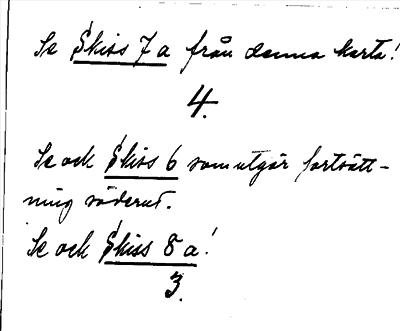 Se Skiss 7a från denna karta!
4.
Se och Skiss 6 som utgör fortsätt-
ning söderut.
Se och Skiss 8a!
3.